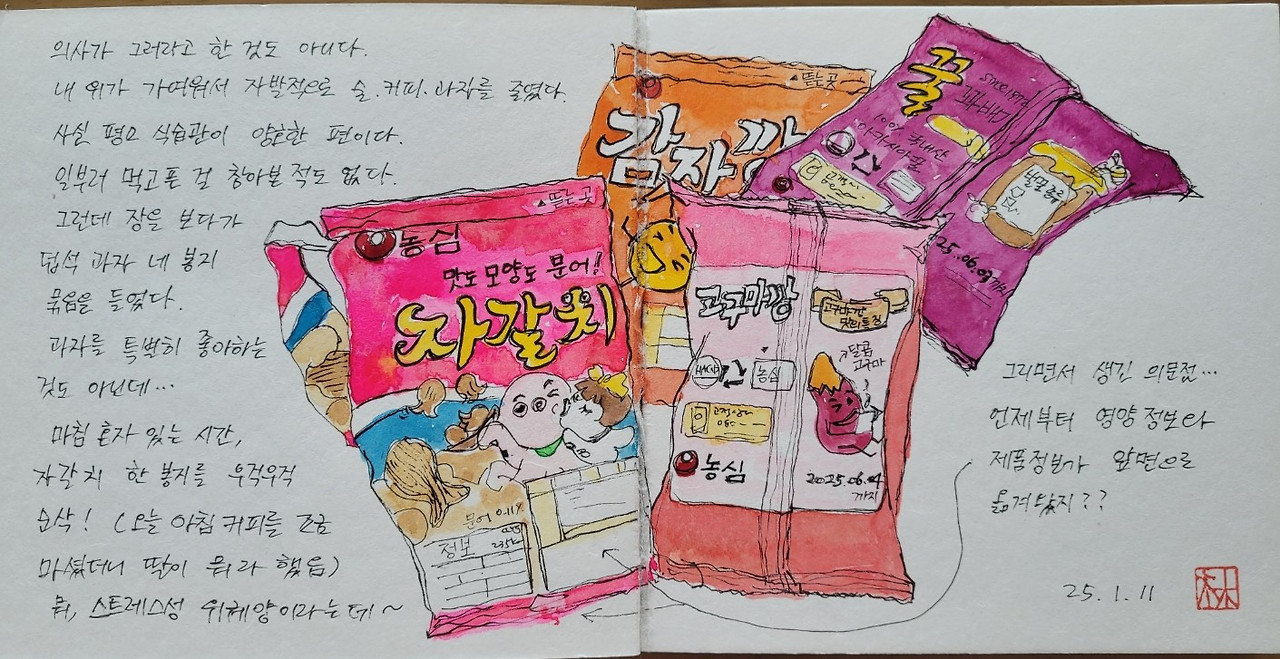 의사가 그러라고 한 것도 아니다.
내 위가 가여워서 자발적으로 술.커피.과자를 줄였다.
사실 평소 식습관이 양호한 편이다.
일부러 먹고픈 걸 찾아본 적도 없다.
그런데 장을 보다가
덥석 과자 네 봉지
묶음을 들었다.
과자를 특별히 좋아하는
것도 아닌데...
마침 혼자 있는 시간,
자갈치 한 봉지를 우걱우걱
순삭! (오늘 아침 커피를 조금
마셨더니 딸이 뭐라 했음)
뭐, 스트레스성 위궤양이라는데~
▲뜯는곳
감자깡
꿀
since 1972
꽈배기
100% 국내산
아카시아꿀
벌꿀
25.06.03까지
▲뜯는곳
농심
맛도 모양도 문어!
자갈치
문어 0.11%
정보
고구마깡
고구마깡
맛의 특징
달콤
고구마
HACCP
농심
고객상담
080
농심
2025.06.04
까지
그러면서 생긴 의문점...
언제부터 영양정보와
제품정보가 앞면으로
옮겨왔지??
25.1.11